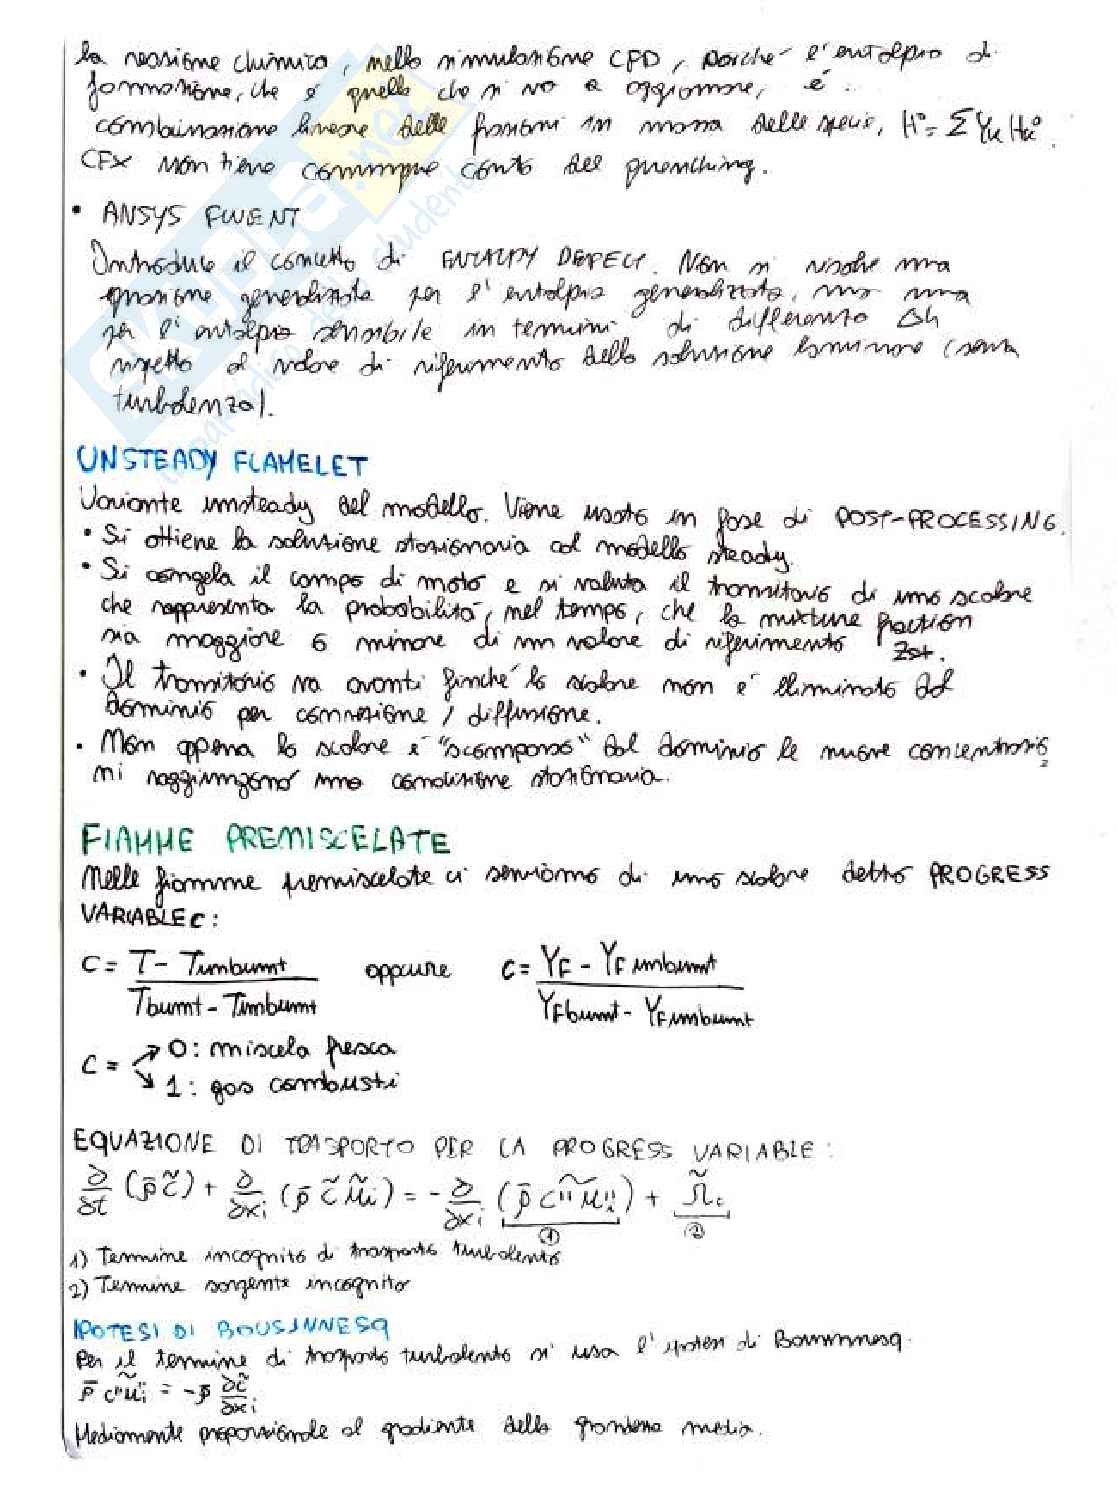 la reazione chimica, nella simulazione CFD, perché l'entalpia di
formazione, che è quella che si va a aggiornare, è
combinazione lineare delle frazioni in massa delle specie, H° = Σ Yk Hk°.
CFX non tiene comunque conto del quenching.
• ANSYS FLUENT
Introduce il concetto di ENTALPY DEFECT. Non si risolve una
equazione generalizzata per l'entalpia generalizzata, ma una
per l'entalpia sensibile in termini di differenza Δh
rispetto al valore di riferimento della soluzione laminare (senza
turbolenza).
UNSTEADY FLAMELET
Variante unsteady del modello. Viene usato in fase di POST-PROCESSING.
• Si ottiene la soluzione stazionaria col modello steady.
• Si congela il campo di moto e si valuta il transitorio di uno scalare
che rappresenta la probabilità, nel tempo, che la mixture fraction
sia maggiore o minore di un valore di riferimento Zst.
• Il transitorio va avanti finché lo scalare non è eliminato dal
dominio per convezione / diffusione.
• Non appena lo scalare è "scomparso" dal dominio le nuove concentrazio
ni raggiungono una condizione stazionaria.
FIAMME PREMISCELATE
Nelle fiamme premiscelate ci serviamo di uno scalare detto PROGRESS
VARIABLE C:
C = (T - Tunburnt) / (Tburnt - Tunburnt) oppure C = (YF - YF unburnt) / (YF burnt - YF unburnt)
C = ↗ 0: miscela fresca
↘ 1: gas combusti
EQUAZIONE DI TRASPORTO PER LA PROGRESS VARIABLE:
∂/∂t (ρ̄ c̃) + ∂/∂xi (ρ̄ c̃ ũi) = - ∂/∂xi (ρ̄ c''u''i) + Ω̃c
① ②
1) Termine incognito di trasporto turbolento
2) Termine sorgente incognito
IPOTESI DI BOUSINNESQ
Per il termine di trasporto turbolento si usa l'ipotesi di Boussinnesq.
ρ̄ c''u''i = -ρ̄ ∂c̃/∂xi
Mediamente proporzionale al gradiente della grandezza media.